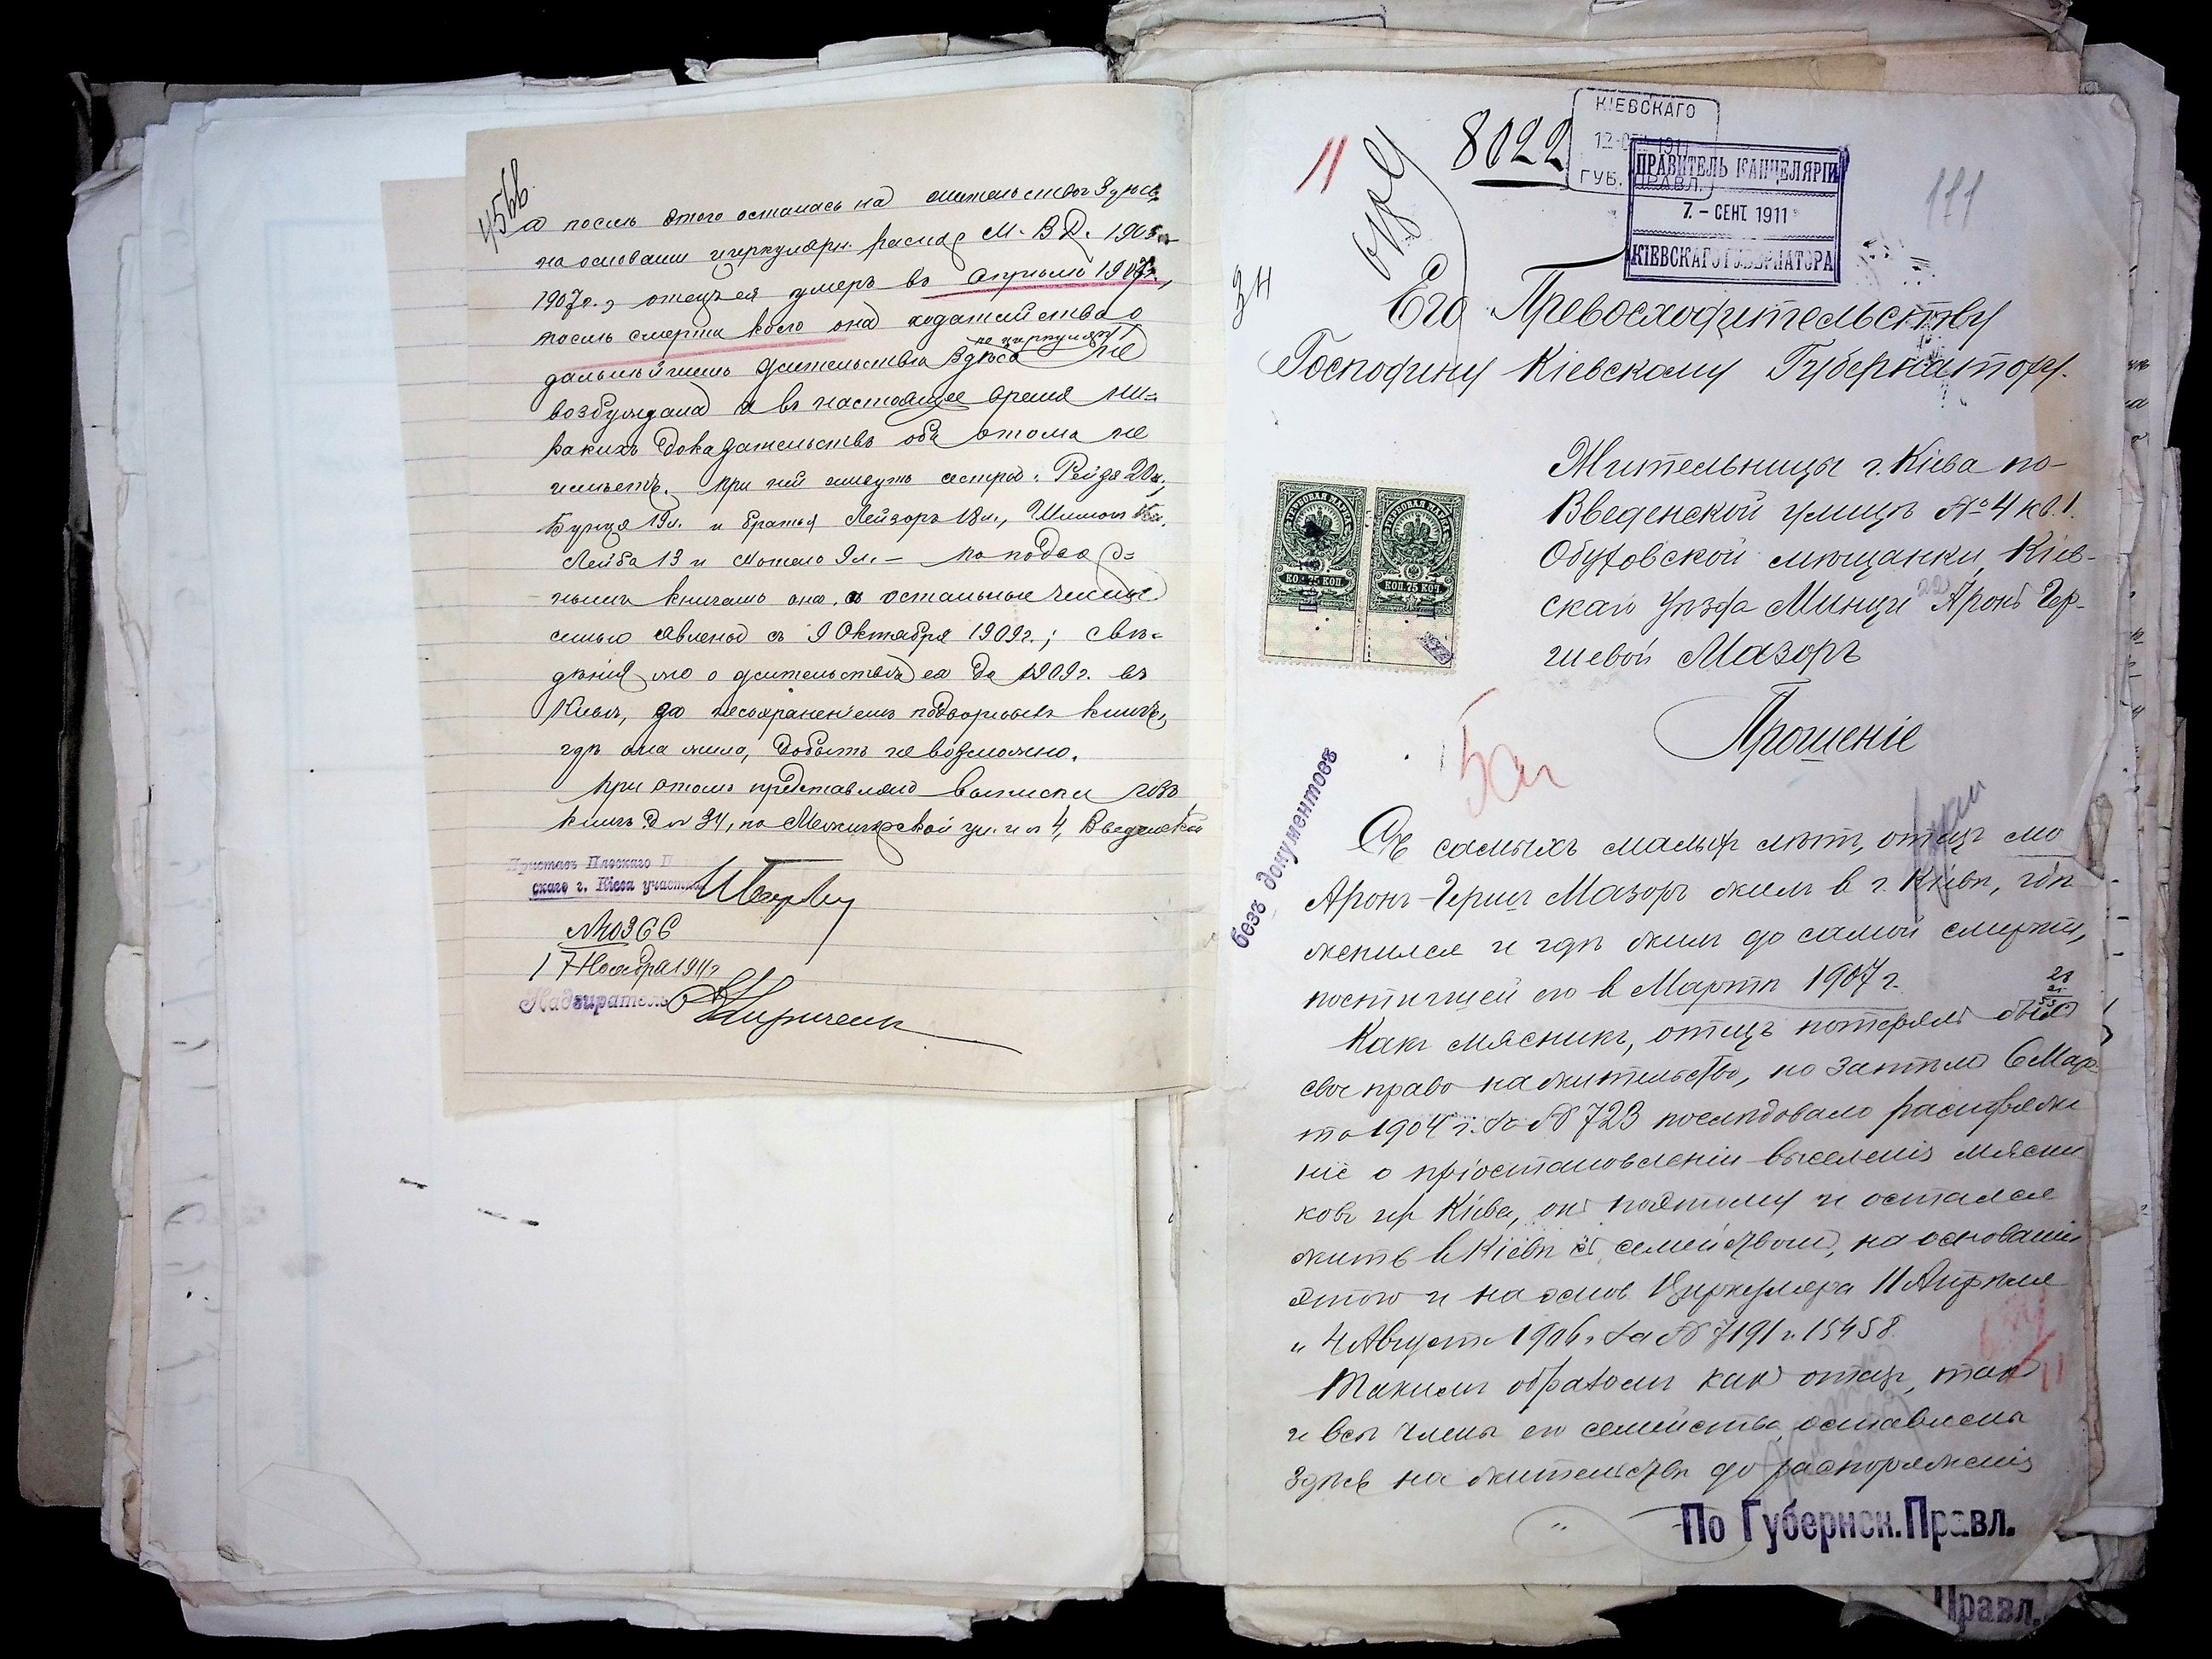 а послѣ этого осталась на жительствѣ здѣсь
на основаніи циркулярн. распор М. В. Д. 1905 и
1907 г., отецъ ея умеръ въ Апрѣлѣ 1907 г.,
послѣ смерти коего она ходатайства о
по циркуляру
дальнѣйшемъ жительствѣ здѣсь не
возбуждала и въ настоящее время ни=
какихъ доказательствъ объ этомъ не
имѣетъ. При ней живутъ сестры: Рейзя 20 л.,
Бруха 19 л. и братья Лейзоръ 18 л., Шимонъ
Лейба 13 и Мотель 9 л. — по подвор=
нымъ книгамъ она, а остальные члены
семьи явлены съ 9 Октября 1909 г.; свѣ=
дѣнія же о жительствѣ ея до 1909 г. въ
Кіевѣ, за несохраненіемъ подворныхъ книгъ,
гдѣ она жила, добыть не возможно.
При этомъ представляю выписки изъ
книгъ д № 34, по Межигорской ул. и № 4, Введенской
Приставъ Плоскаго
скаго г. Кіева участка
№ 10366
17 Ноября 1911 г
Надзиратель
11
8022
КІЕВСКАГО
12 СЕН 1911
ГУБ. ПРАВЛ.
ПРАВИТЕЛЬ КАНЦЕЛЯРІИ
7. - СЕНТ. 1911
КІЕВСКАГО ГУБЕРНАТОРА
111
Его Превосходительству
Господину Кіевскому Губернатору.
Жительницы г. Кіева по
Введенской улицѣ № 4 кв. 1.
Обуховской мѣщанки, Кіев-
скаго уѣзда Минци Аронъ Гер-
шевой Мазоръ
КОП. 75 КОП.
КОП. 75 КОП.
Прошеніе
безъ документовъ
Съ самыхъ малых лѣтъ, отецъ мо
Аронъ-Гершъ Мазоръ жилъ в г. Кіевѣ, гдѣ
женился и гдѣ жилъ до самой смерти,
постигшей его в Мартѣ 1907 г.
Какъ мясникъ, отецъ потерялъ было
свое право на жительство, но затѣмъ 6 Мар-
та 1904 г. за № 723 послѣдовало распоряже
ніе о пріостановленіи выселенія мясни
ковъ изъ Кіева, онъ поэтому и остался
жить в Кіевѣ съ семействомъ, на основаніи
этого и на основ Циркуляра 11 Апрѣля
и 4 Августа 1906 г за № 7191 и 15458.
Такимъ образомъ какъ отецъ, такъ
и всѣ члены его семейства оставлены
здѣсь на жительствѣ до распоряженія
По Губернск. Правл.
Правл.